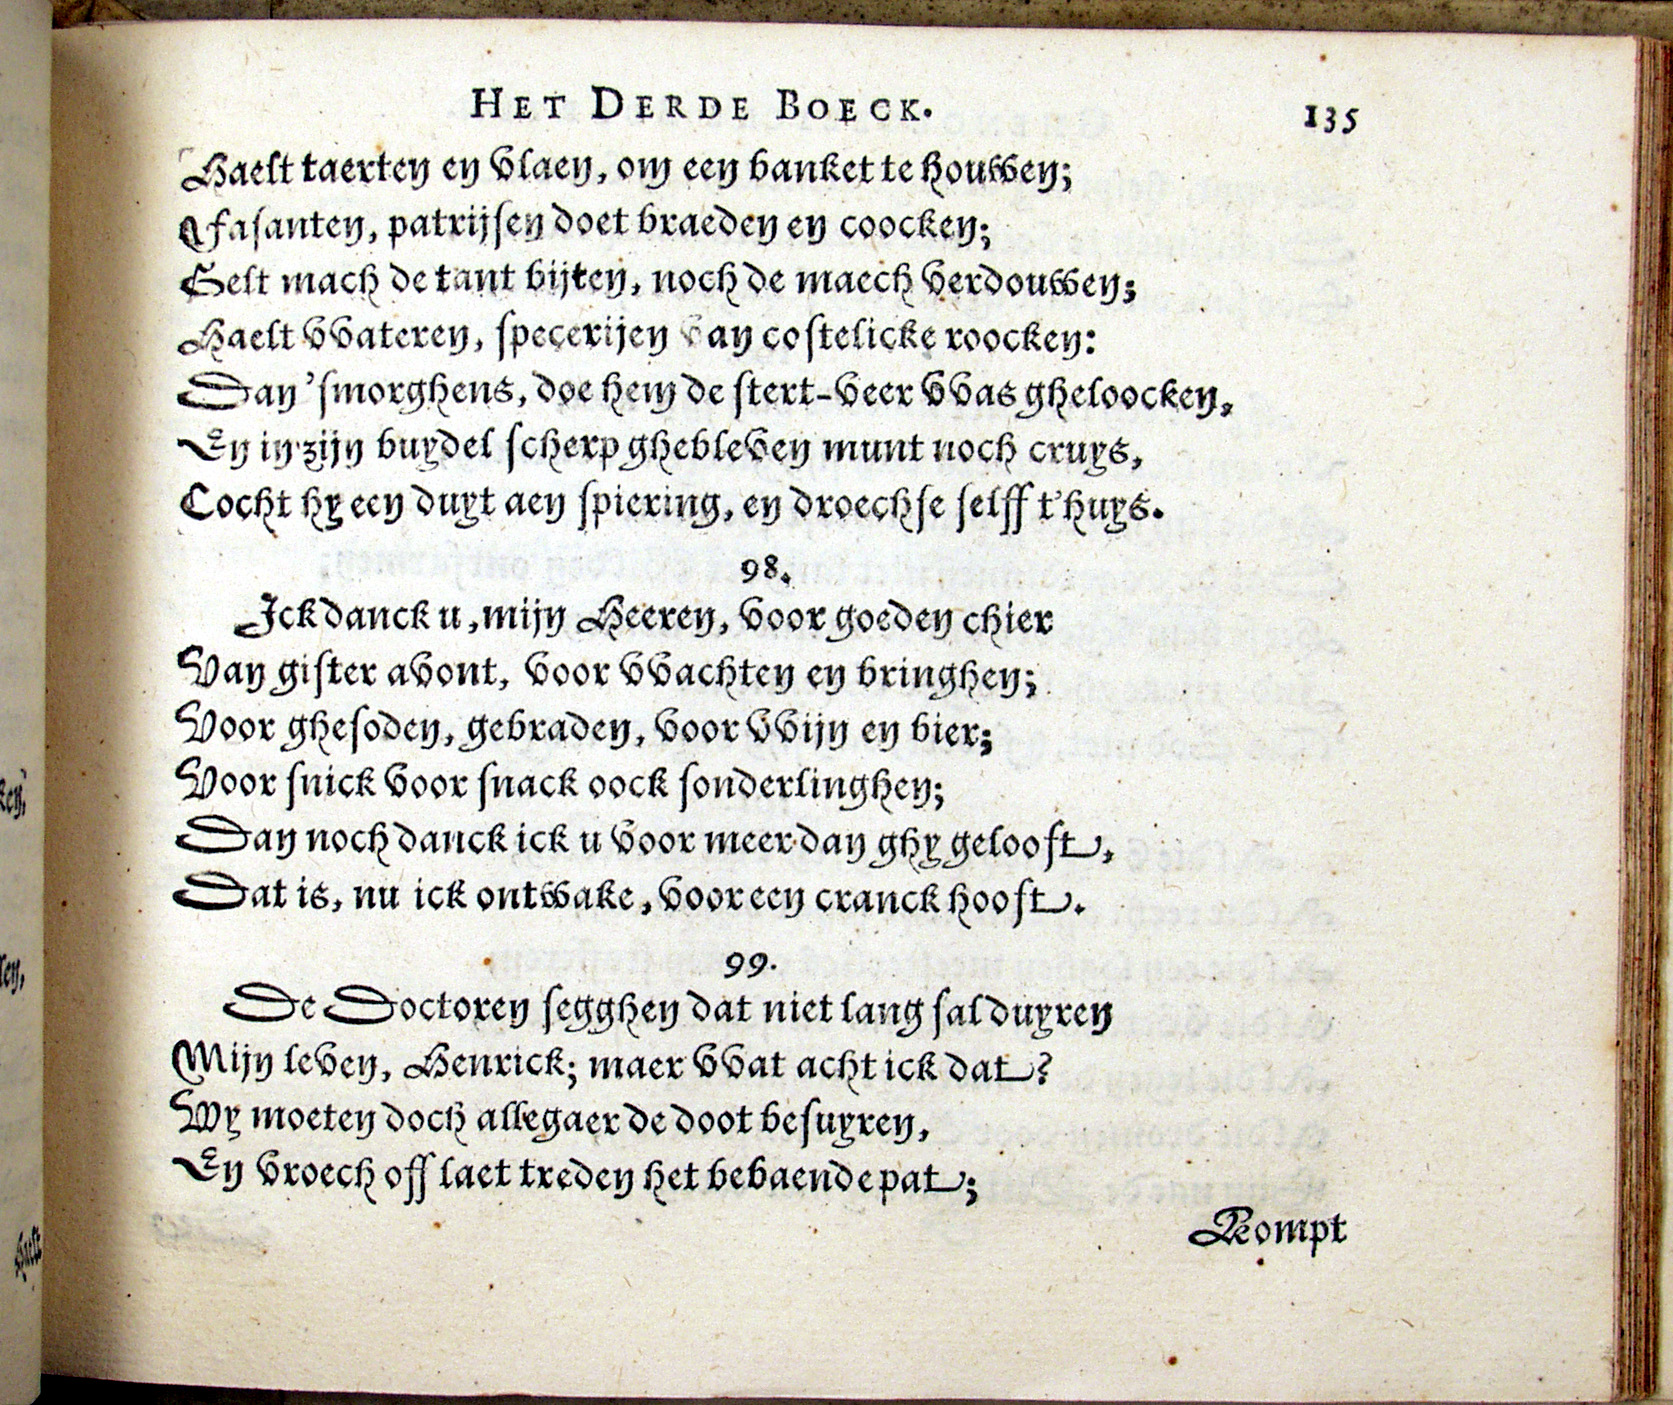 HET DERDE BOECK. 135
Haelt taerten en vlaen, om een banket te houwen;
Fasanten, patrijsen doet braeden en coocken;
Gelt mach de tant bijten, noch de maech verdouwen;
Haelt vvateren, specerijen van costelicke roocken:
Dan 'smorghens, doe hem de stert-veer vvas gheloocken,
En in zijn buydel scherp ghebleven munt noch cruys,
Cocht hy een duyt aen spiering, en droechse selff t'huys.
98.
Ick danck u, mijn Heeren, voor goeden chier
Van gister avont, voor vvachten en bringhen;
Voor ghesoden, gebraden, voor vvijn en bier;
Voor snick voor snack oock sonderlinghen;
Dan noch danck ick u voor meer dan ghy gelooft,
Dat is, nu ick ontwake, voor een cranck hooft.
99.
De Doctoren segghen dat niet lang sal duyren
Mijn leven, Henrick; maer vvat acht ick dat?
Wy moeten doch allegaer de doot besuyren,
En vroech off laet treden het bebaende pat;
Rompt